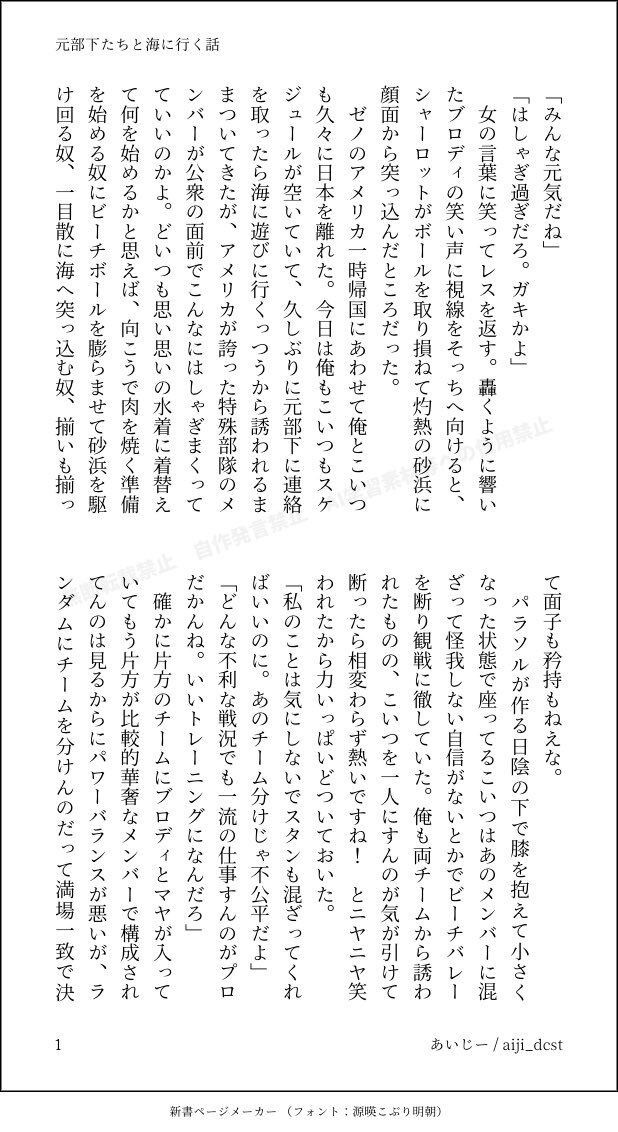 元部下たちと海に行く話
「みんな元気だね」
「はしゃぎ過ぎだろ。ガキかよ」
　女の言葉に笑ってレスを返す。轟くように響い
たブロディの笑い声に視線をそっちへ向けると、
シャーロットがボールを取り損ねて灼熱の砂浜に
顔面から突っ込んだところだった。
　ゼノのアメリカ一時帰国にあわせて俺とこいつ
も久々に日本を離れた。今日は俺もこいつもスケ
ジュールが空いていて、久しぶりに元部下に連絡
を取ったら海に遊びに行くっつうから誘われるま
まついてきたが、アメリカが誇った特殊部隊のメ
ンバーが公衆の面前でこんなにはしゃぎまくって
ていいのかよ。どいつも思い思いの水着に着替え
て何を始めるかと思えば、向こうで肉を焼く準備
を始める奴にビーチボールを膨らませて砂浜を駆
け回る奴、一目散に海へ突っ込む奴、揃いも揃っ
て面子も矜持もねえな。
　パラソルが作る日陰の下で膝を抱えて小さく
なった状態で座ってるこいつはあのメンバーに混
ざって怪我しない自信がないとかでビーチバレー
を断り観戦に徹していた。俺も両チームから誘わ
れたものの、こいつを一人にすんのが気が引けて
断ったら相変わらず熱いですね！　とニヤニヤ笑
われたから力いっぱいどついておいた。
「私のことは気にしないでスタンも混ざってくれ
ばいいのに。あのチーム分けじゃ不公平だよ」
「どんな不利な戦況でも一流の仕事すんのがプロ
だかんね。いいトレーニングになんだろ」
　確かに片方のチームにブロディとマヤが入って
いてもう片方が比較的華奢なメンバーで構成され
てんのは見るからにパワーバランスが悪いが、ラ
ンダムにチームを分けんのだって満場一致で決
無断転載禁止　自作発言禁止　AI学習素材等への使用禁止
1
あいじー / aiji_dcst
新書ページメーカー（フォント：源暎こぶり明朝）